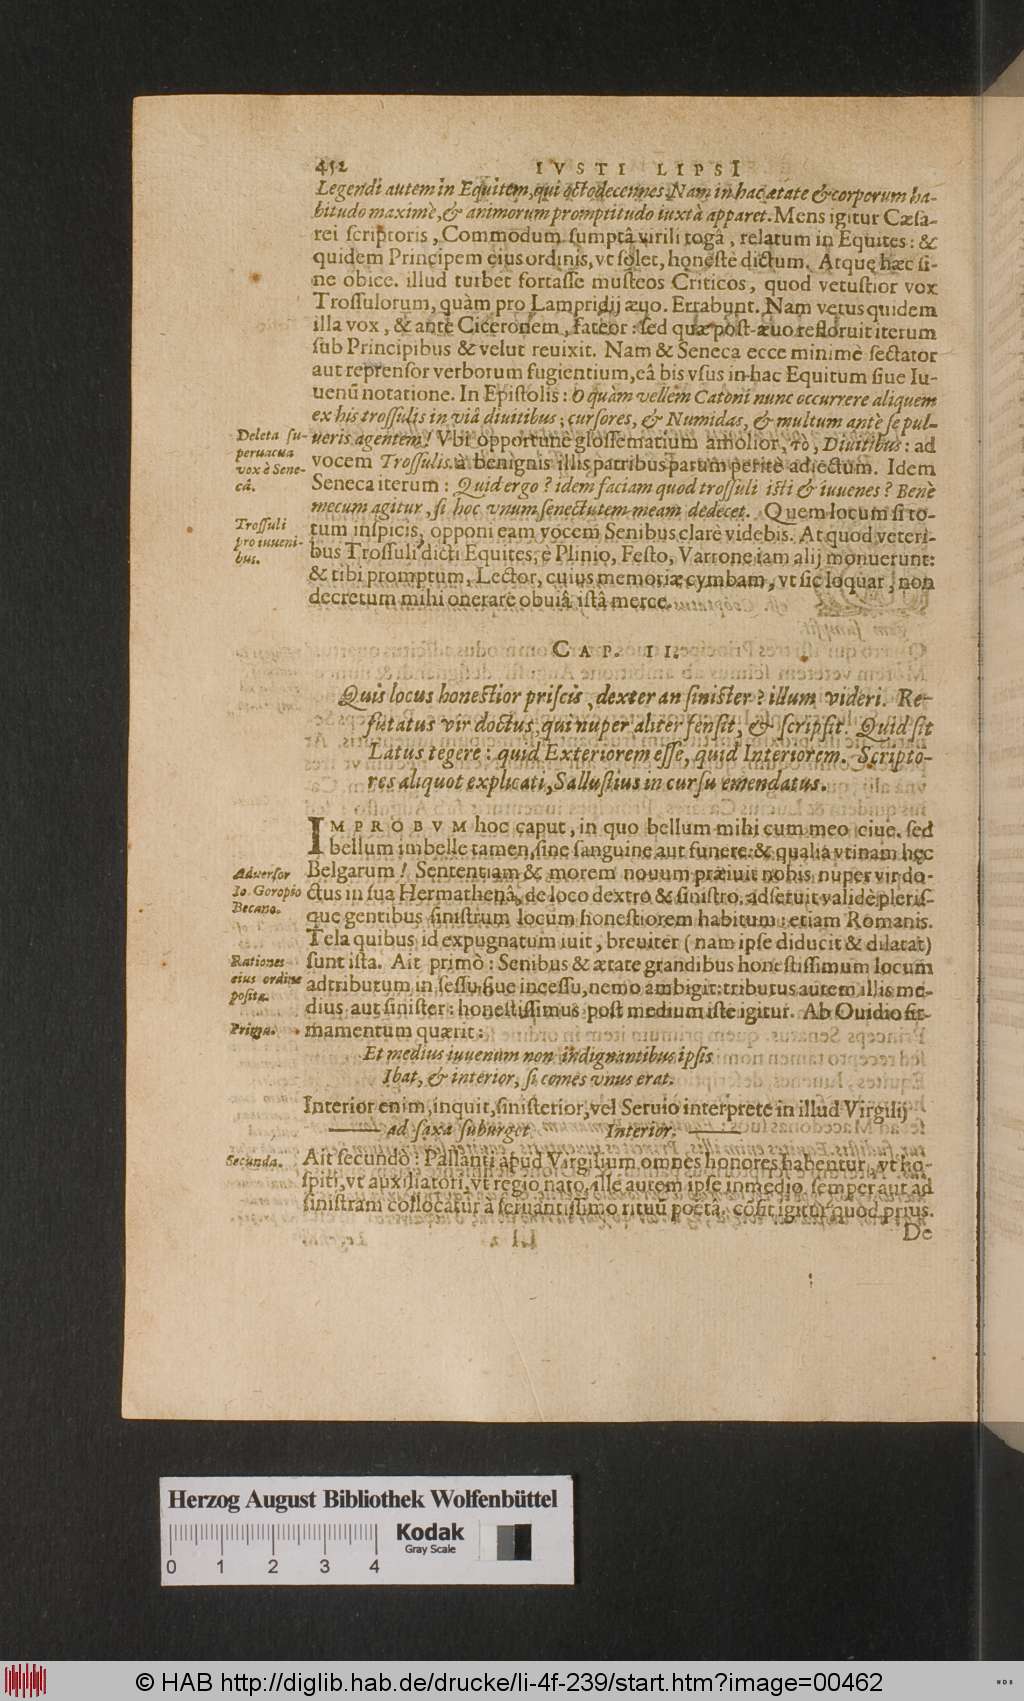 452 IVSTI LIPSI
Legendi autem in Equitem, qui octodecennes. Nam in hac ætate & corporum ha-
bitudo maximè, & animorum promptitudo iuxtà apparet. Mens igitur Cæsa-
rei scriptoris, Commodum sumptâ virili togâ, relatum in Equites: &
quidem Principem eius ordinis, vt solet, honestè dictum. Atque hæc si-
ne obice. illud turbet fortasse musteos Criticos, quod vetustior vox
Trossulorum, quàm pro Lampridij æuo. Errabunt. Nam vetus quidem
illa vox, & antè Ciceronem, fateor: sed quæ pòst-æuo refloruit iterum
sub Principibus & velut reuixit. Nam & Seneca ecce minimè sectator
aut reprensor verborum fugientium, eâ bis vsus in hac Equitum siue Iu-
uenũ notatione. In Epistolis: O quàm vellem Catoni nunc occurrere aliquem
ex his trossulis in viâ diuitibus; cursores, & Numidas, & multum antè se pul-
Deleta su-
peruacua
vox è Sene-
câ.
ueris agentem! Vbi opportunè glossematium amolior, τὸ, Diuitibus: ad
vocem Trossulis. à benignis illis patribus parum peritè adiectum. Idem
Seneca iterum: Quid ergo? idem faciam quod trossuli isti & iuuenes? Benè
mecum agitur, si hoc vnum senectutem meam dedecet. Quem locum si to-
Trossuli
pro iuueni-
bus.
tum inspicis, opponi eam vocem Senibus clarè videbis. At quod veteri-
bus Trossuli dicti Equites; è Plinio, Festo, Varrone iam alij monuerunt:
& tibi promptum, Lector, cuius memoriæ cymbam, vt sic loquar, non
decretum mihi onerare obuiâ istâ merce.
CAP. II.
Quis locus honestior priscis, dexter an sinister? illum videri. Re-
futatus vir doctus, qui nuper aliter sensit, & scripsit. Quid sit
Latus tegere: quid Exteriorem esse, quid Interiorem. Scripto-
res aliquot explicati, Sallustius in cursu emendatus.
IMPROBVM hoc caput, in quo bellum mihi cum meo ciue. sed
bellum imbelle tamen, sine sanguine aut funere: & qualia vtinam hęc
Aduersor
Io. Goropio
Becano.
Belgarum! Sententiam & morem nouum præiuit nobis nuper vir do-
ctus in suâ Hermathenâ, de loco dextro & sinistro. adseruit validè pleris-
que gentibus sinistrum locum honestiorem habitum: etiam Romanis.
Tela quibus id expugnatum iuit, breuiter (nam ipse diducit & dilatat)
Rationes
eius ordine
positæ.
sunt ista. Ait primò: Senibus & ætate grandibus honestissimum locum
adtributum in sessu, siue incessu, nemo ambigit: tributus autem illis me-
dius aut sinister: honestissimus post medium iste igitur. Ab Ouidio fir-
Prima.
mamentum quærit:
Et medius iuuenum non indignantibus ipsis
Ibat, & interior, si comes vnus erat.
Interior enim, inquit, sinisterior, vel Seruio interprete in illud Virgilij
—— ad saxa suburget Interior. ——
Secunda.
Ait secundò: Pallanti apud Virgilium omnes honores habentur, vt ho-
spiti, vt auxiliatori, vt regio nato. ille autem ipse in medio semper aut ad
sinistram collocatur à seruantissimo rituũ poëtâ. cõsit igitur quod prius.
De
Herzog August Bibliothek Wolfenbüttel
Kodak
Gray Scale
0 1 2 3 4
© HAB http://diglib.hab.de/drucke/li-4f-239/start.htm?image=00462